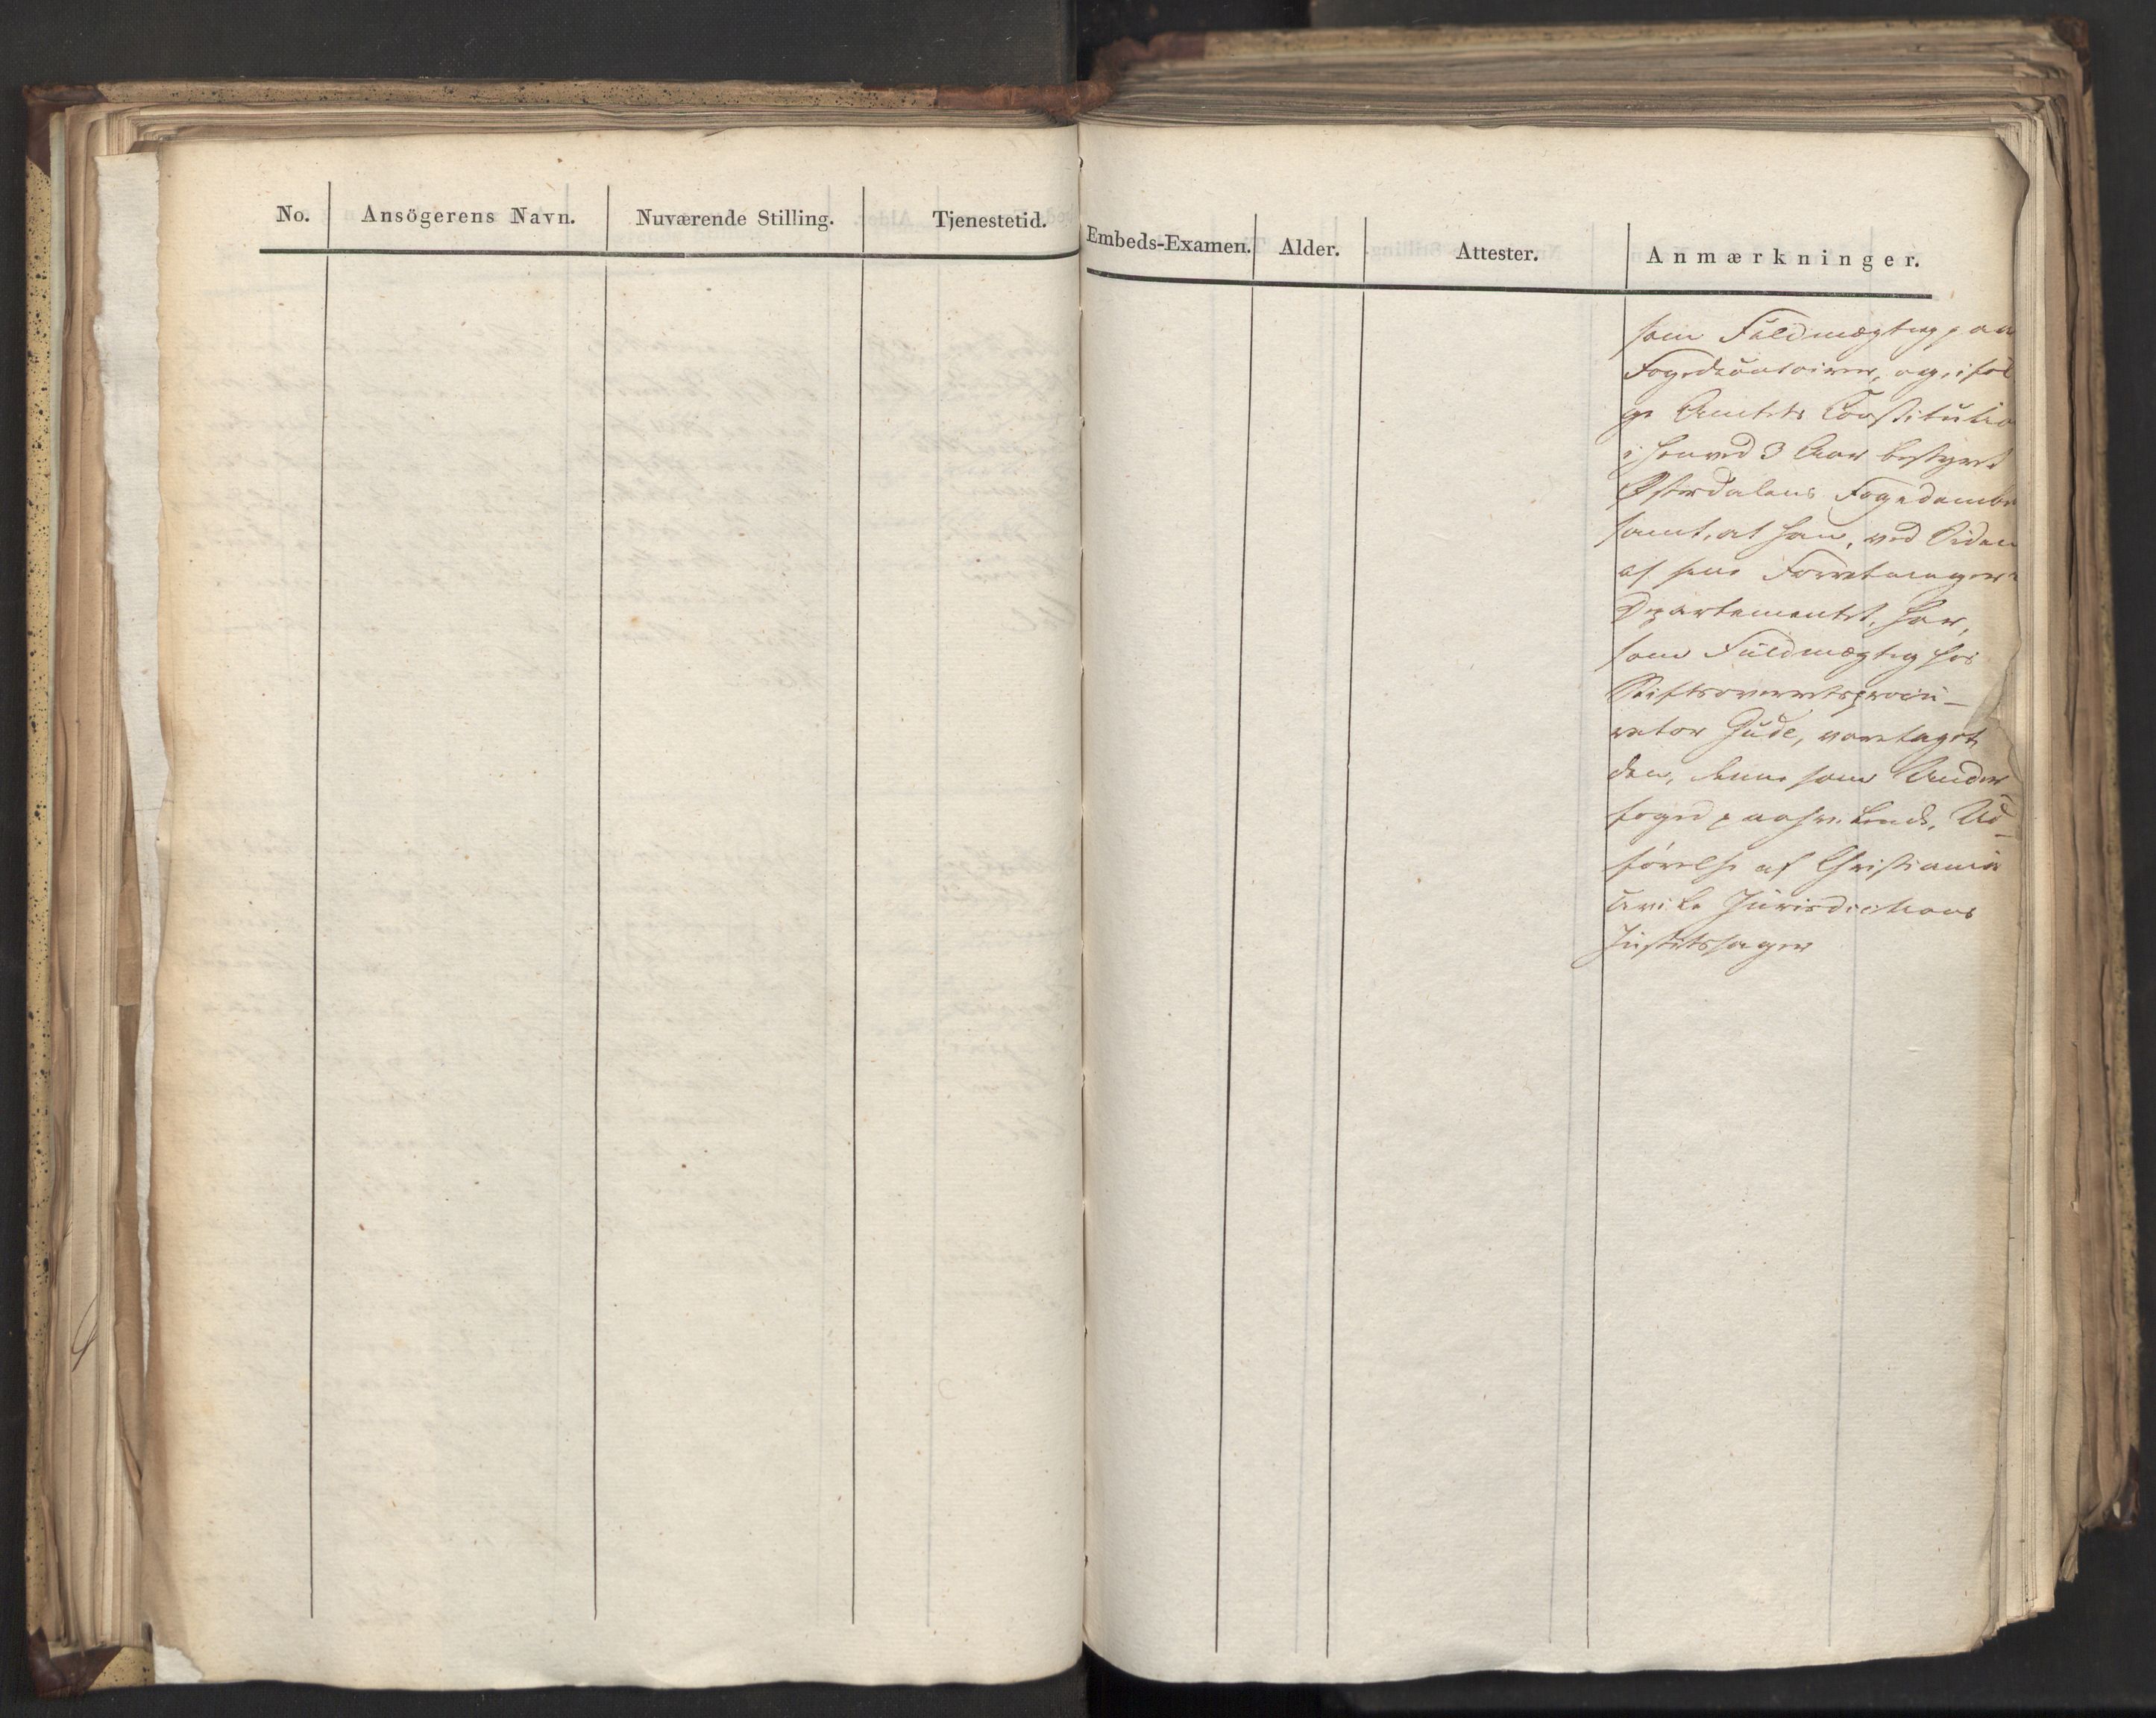 No. Ansögerens Navn. Nuværende Stilling. Tjenestetid.
Embeds-Examen. Alder. Attester. Anmærkninger.
som Fuldmægtig paa
Fogedcontoiret, og, iføl
ge Amtets Constitutio
i henved 3 Aar bestyret
Østerdalens Fogedembe
samt, at han, ved Siden
af sine Forretninger i
Departementet, har,
som Fuldmægtig hos
Stiftsoverretsprocu-
rator Gude, varetaget
den, denne som Under-
foged paahvilende, Ud-
førelse af Christiania
civile Jurisdictions
Justitssager